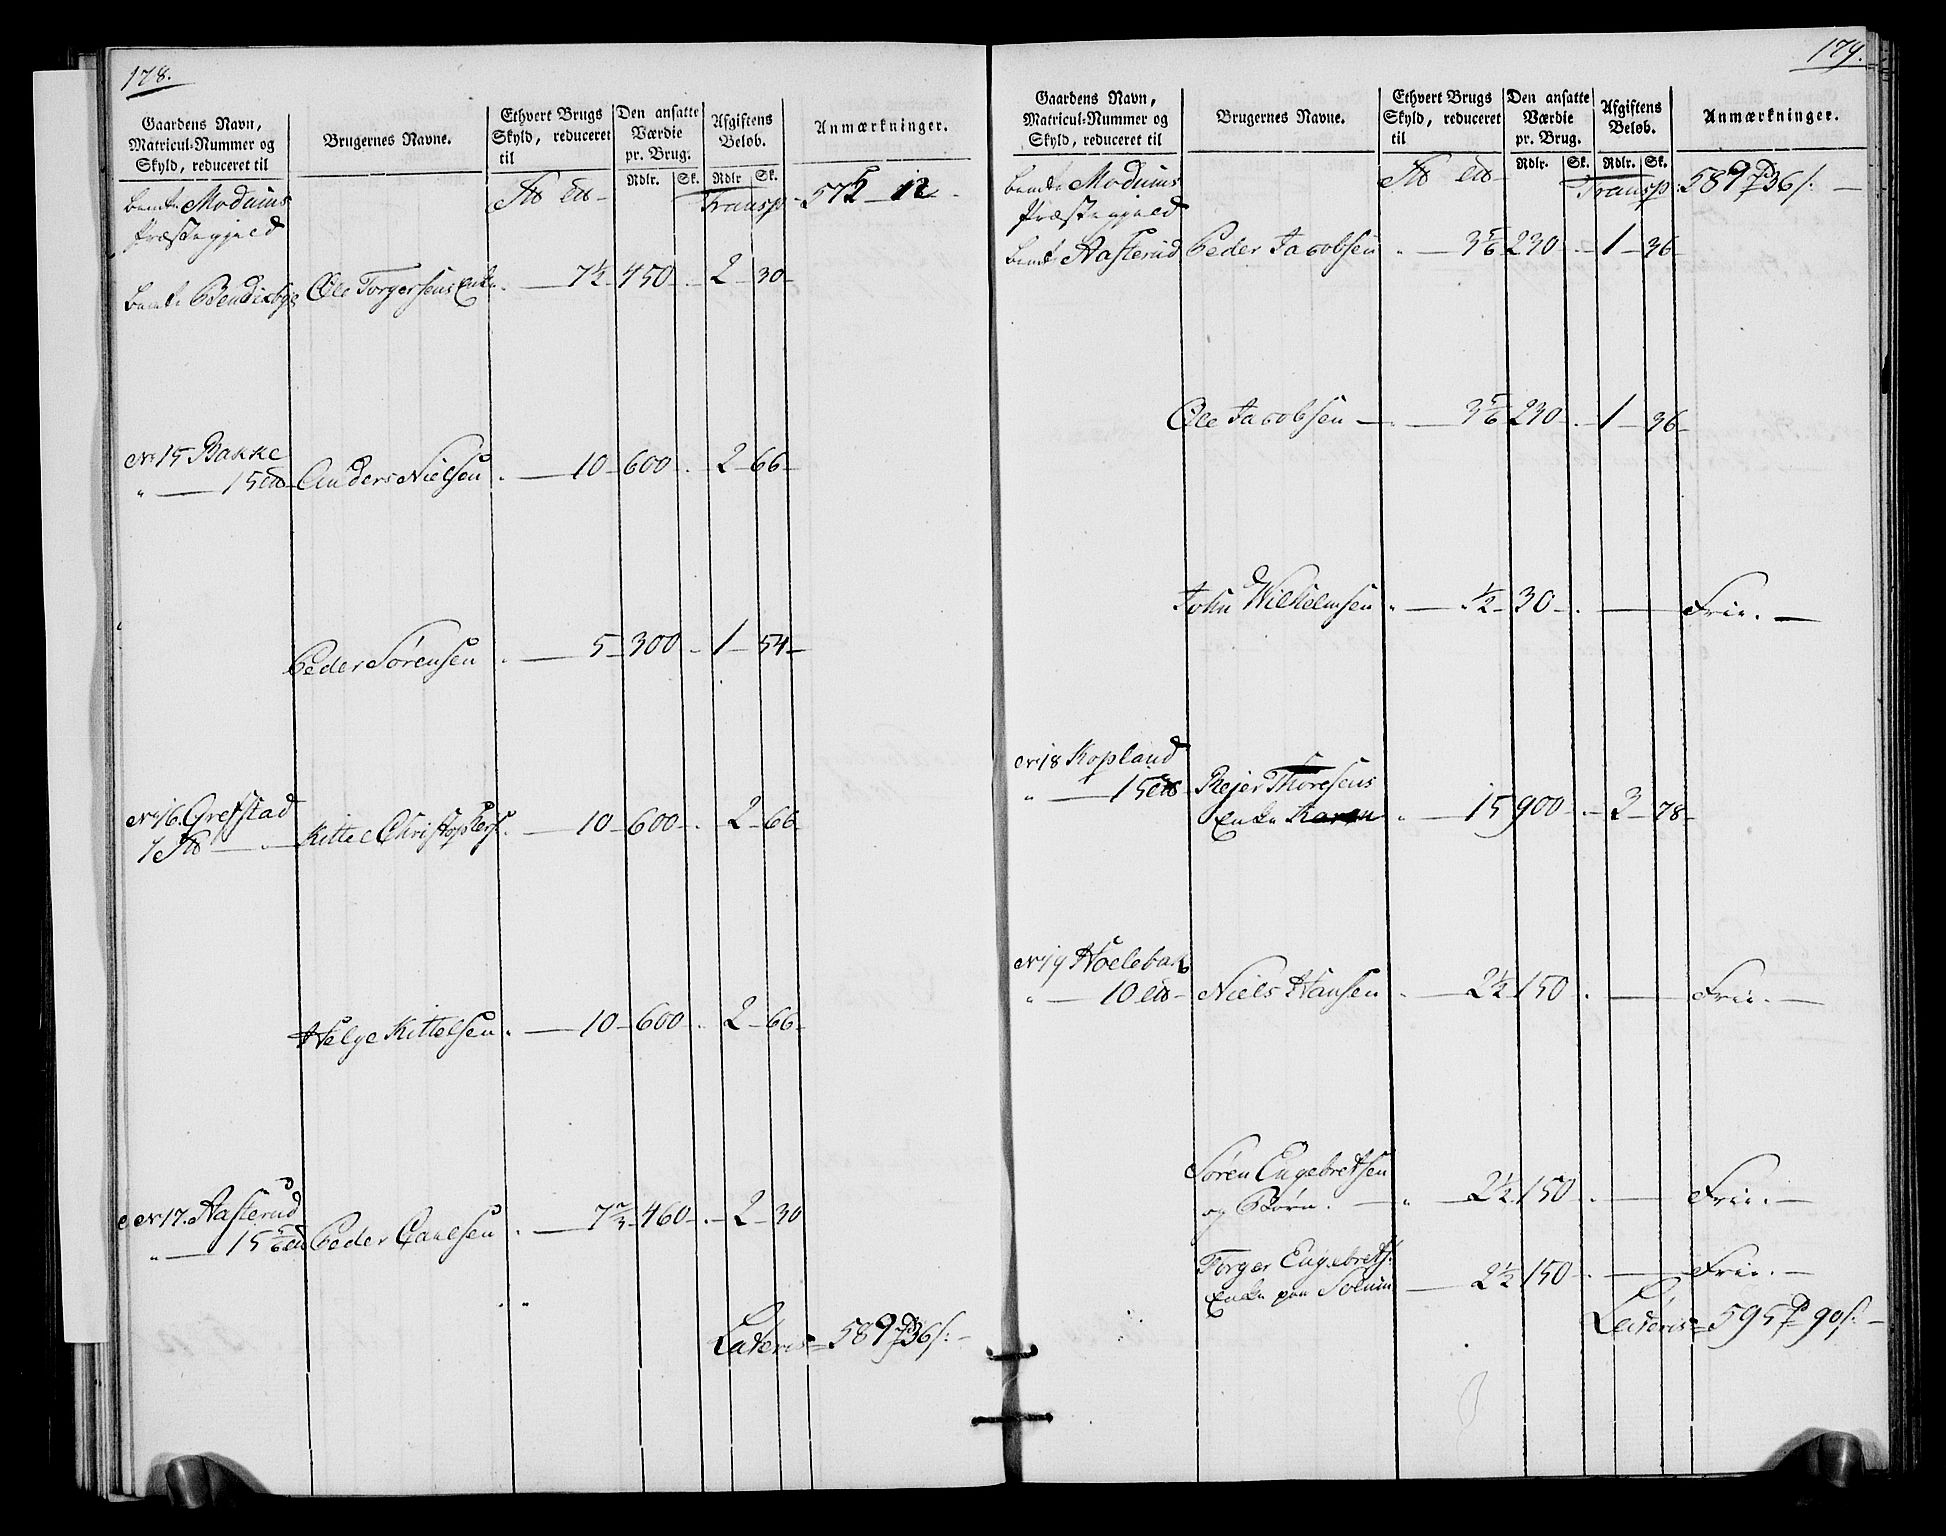 178.
Gaardens Navn, Matricul-Nummer og Skyld, reduceret til
Brugernes Navne.
Ethvert Brugs Skyld, reduceret til
Den ansatte Værdie pr. Brug.
Afgiftens Beløb.
Anmærkninger.
Rdlr. Sk. Rdlr Sk.
bemte Modums Transp. 572 12
Præstegjeld
bemte Bendixbye Ole Torgersens Enke 7½ 450 2 30
No 15 Bakke
" 15 Anders Nielsen " 10 600 2 66
Peder Sørensen " 5 300 1 54
No 16. Grefstad
1 " Kittel Christophers. 10 600 2 66
Helge Kittelsen " 10 600 2 66
No 17. Aasterud
" 15 5/6 Peder Paulsen " 7 2/3 460 2 30
Lateris = 589 36 s:
179.
Gaardens Navn, Matricul-Nummer og Skyld, reduceret til
Brugernes Navne.
Ethvert Brugs Skyld, reduceret til
Den ansatte Værdie pr. Brug.
Afgiftens Beløb.
Anmærkninger.
Rdlr. Sk. Rdlr. Sk.
bemte Modums Transp: 589 36 s:
Præstegjeld
bemt Aasterud Peder Jacobsen " 3 5/6 230 1 36
Ole Jacobsen 3 5/6 230 1 36
John Wilhelmsen " ½ 30 Frie.
No 18 Kopland
" 15 Rejer Thoresens
Enke Karen " 15 900 3 78
No 19 Hoelebak
" 10 Niels Hansen " 2½ 150 Frie.
Søren Engebretsen
og Børn. " 2½ 150 Frie.
Torger Engebrets:
Enke paa Solum 2½ 150 Frie.
Lateris = 595 90 s: